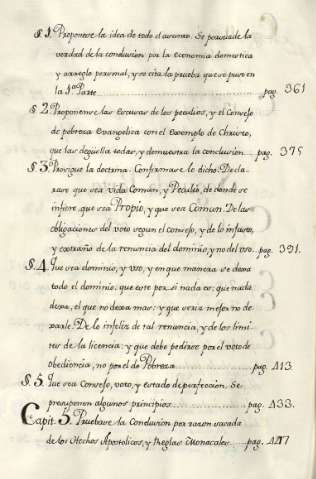 § 1. Proponese la idea de todo el asunto. Se persuade la
verdad de la conclusion por la economia domestica
y arreglo personal, y se cita la prueba que se puso en
la 1ª Parte pag. 361
§ 2. Proponense las escusas de los peculios, y el Consejo
de pobreza Evangelica con el exemplo de Christo,
que las deguella todas, y demuestra la conclusion pag. 375
§ 3. Prosigue la doctrina. Confirmase lo dicho. Decla
rase que sea vida Comun, y Peculio, de donde se
infiere que sea Propio, y que sea Comun. De las
obligaciones del voto segun el consejo, y de lo infausto,
y extraño de la renuncia del dominio, y no del uso. pag. 391.
§. 4. Que sea dominio, y uso, y en que manera se dexa
todo el dominio; que este por si nada es; que nada
dexa, el que no dexa mas: y que seria mejor no de
xarle. De lo infeliz de tal renuncia, y de los limi
tes de la licencia: y que debe pedirse por el voto de
obediencia, no por el de Pobreza pag. 413.
§. 5. Que sea Consejo, voto, y estado de perfeccion. Se
presuponen algunos principios pag. 433.
Capit. 5. Pruebase la Conclusion por razon sacada
de los Hechos Apostolicos, y Reglas Monacales. pag. 447